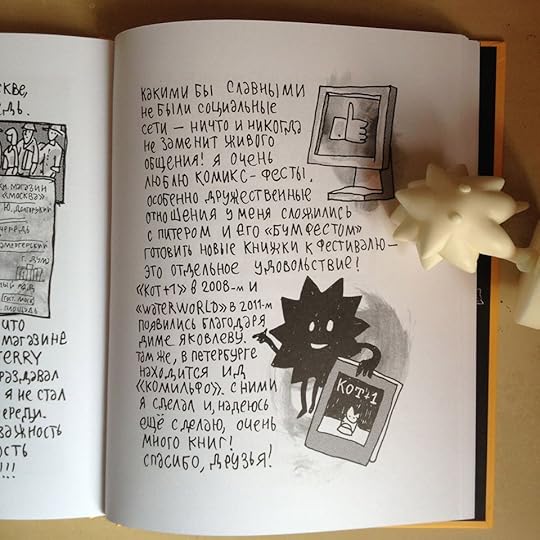 скве,
дь.
ки магазин
«москва»
ю. Долгорукий
чередь
г. дума
площадь
что
магазине
TERRY
раздавал
я не стал
череди.
важность
ость
!!!
какими бы славными
не были социальные
сети – ничто и никогда
не заменит живого
общения! я очень
люблю комикс-фесты.
особенно дружественные
отношения у меня сложились
с питером и его «бумфестом»
готовить новые книжки к фестивалю –
это отдельное удовольствие!
«кот+1» в 2008-м и
«waterworld» в 2011-м
появились благодаря
диме яковлеву.
там же, в петербурге
находится ид
«комильфо». с ними
я сделал и, надеюсь
ещё сделаю, очень
много книг!
спасибо, друзья!
кот+1